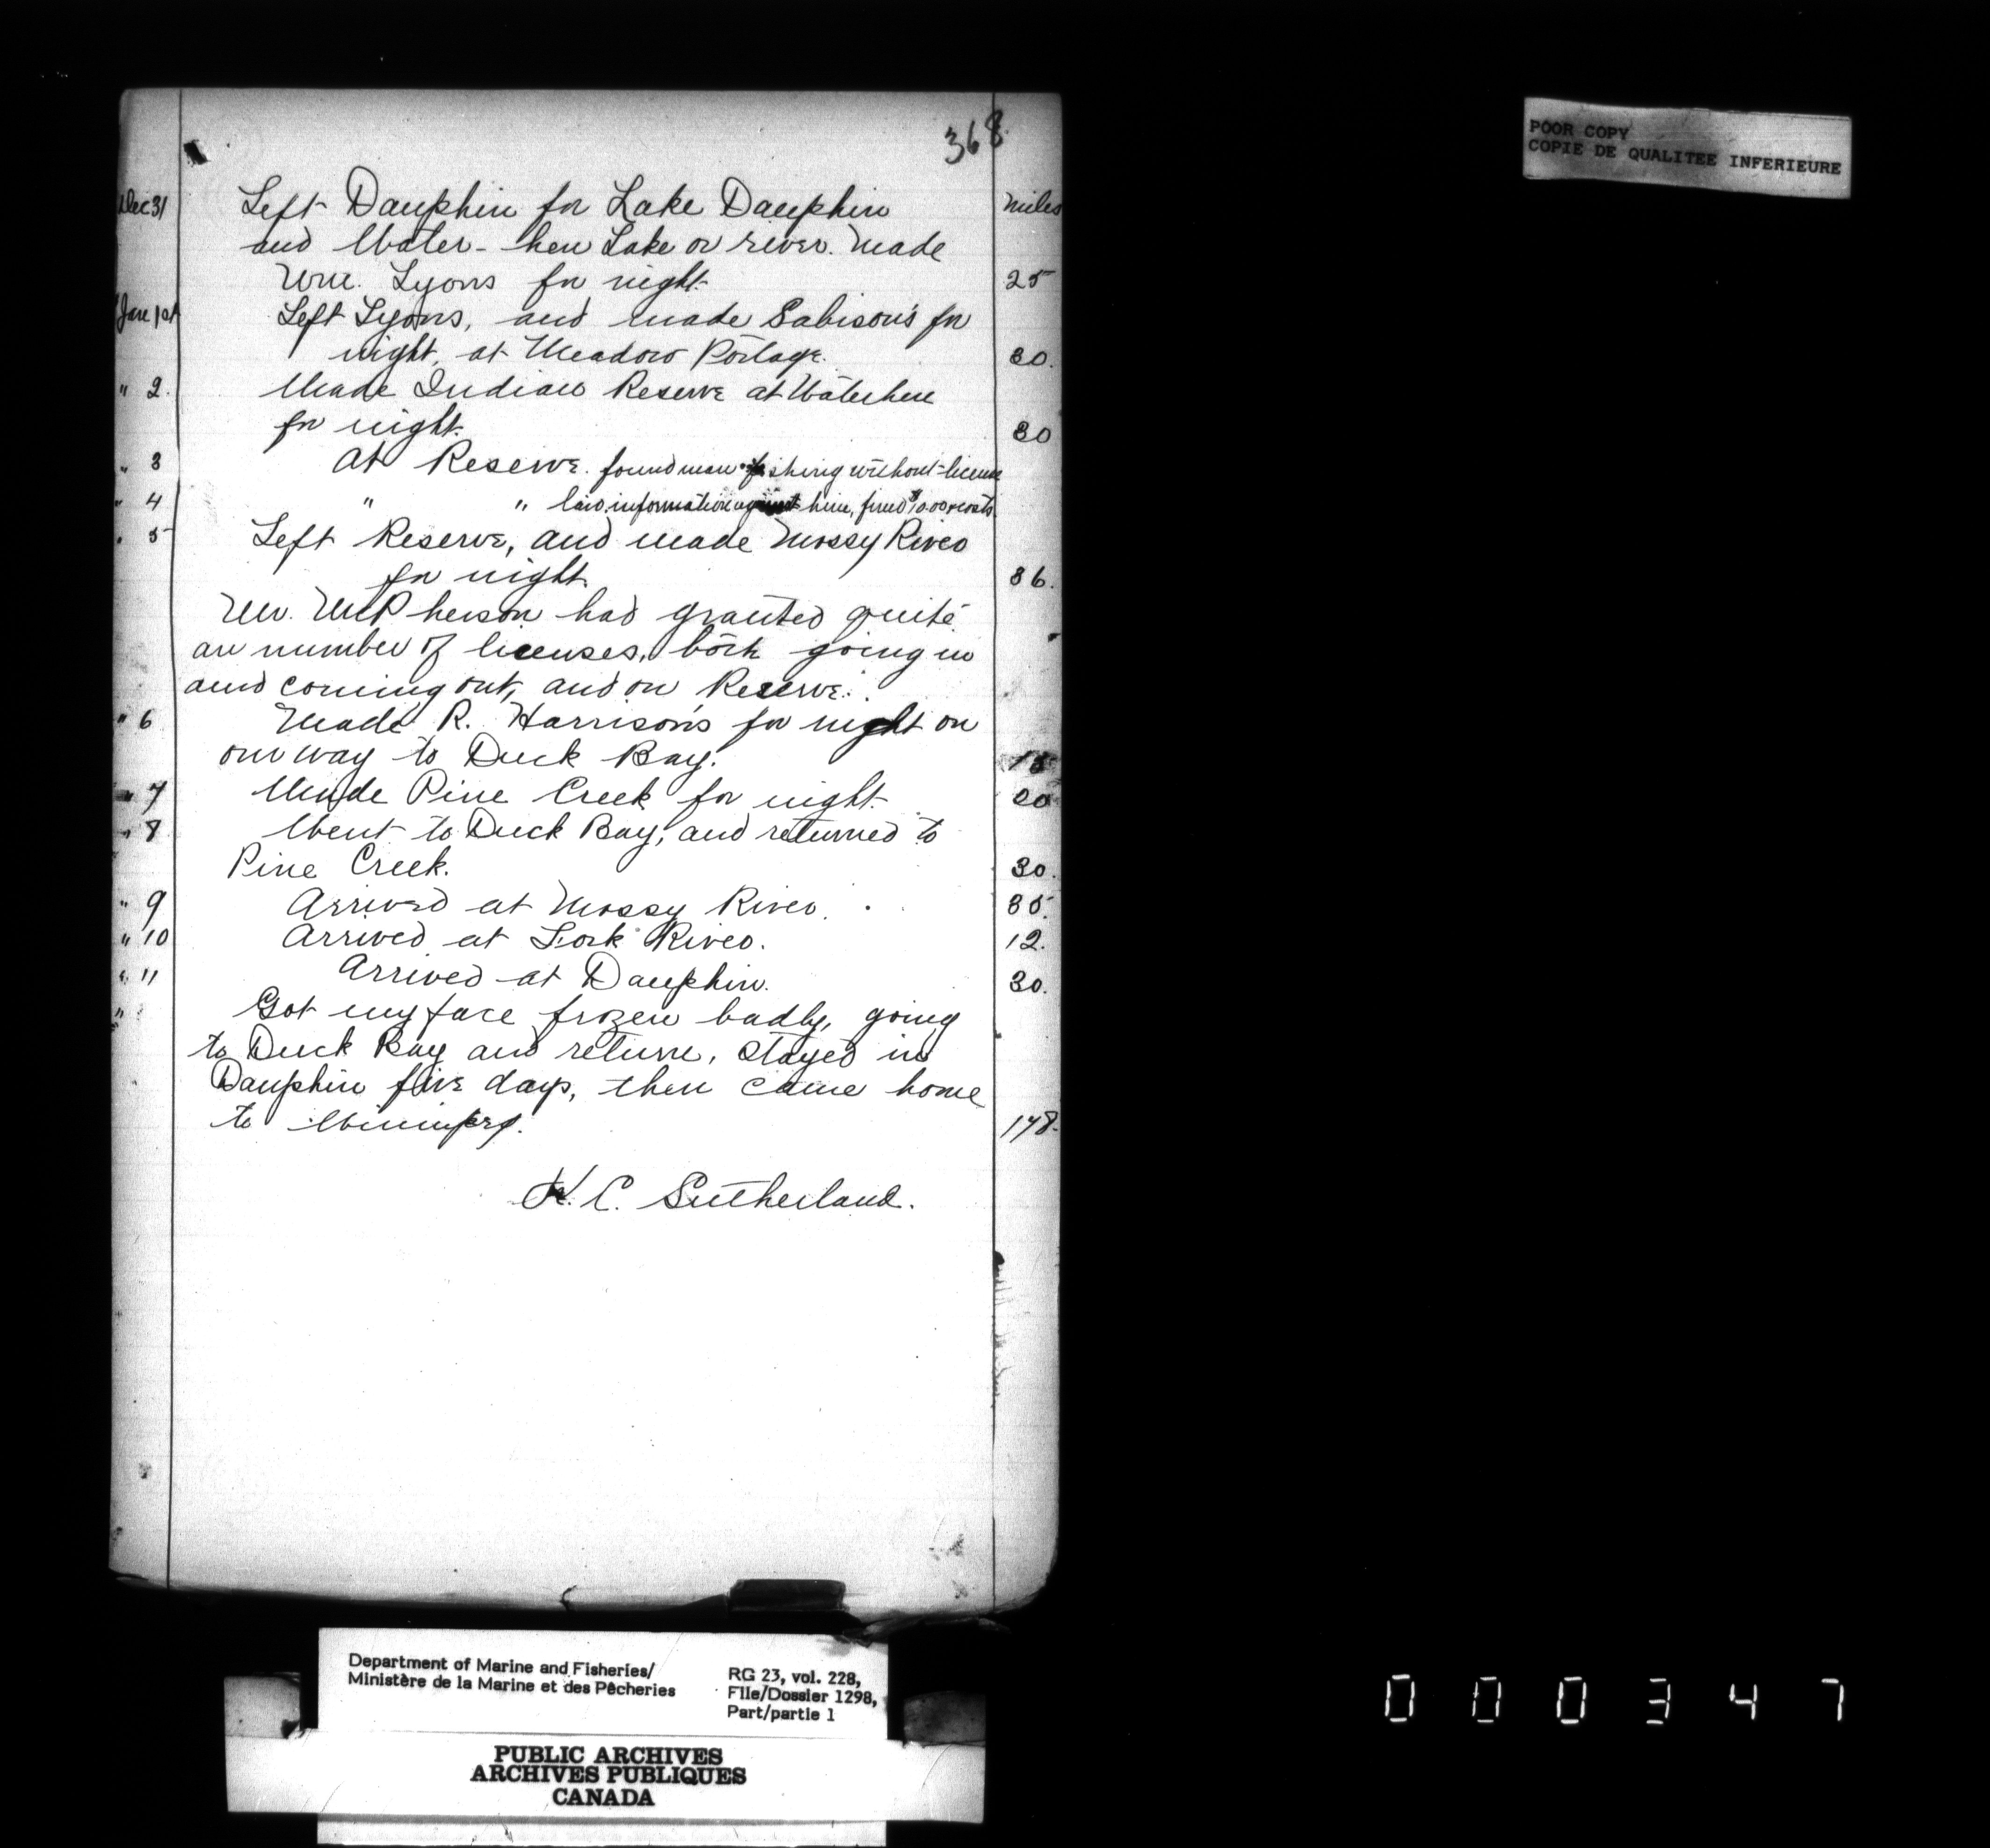 368
Dec 31 Left Dauphin for Lake Dauphin miles
and Water-hen Lake or river. Made
Wm. Lyons for night. 25
Jan 1st Left Lyons, and made Sabison's for
night, at Meadow Portage. 30.
" 2. Made Indian Reserve at Waterhen
for night. 30
" 3 At Reserve. found man fishing without license
" 4 " " laid information against him, fined $10.00 & costs.
" 5 Left Reserve, and made Mossy River
for night. 36.
Mr. McPherson had granted quite
an number of licenses, both going in
and coming out, and on Reserve.
" 6 Made R. Harrison's for night on
our way to Duck Bay. 15
" 7 Made Pine Creek for night. 20
" 8 Went to Duck Bay, and returned to
Pine Creek. 30.
" 9 Arrived at Mossy River. 35.
" 10 Arrived at Fork River. 12.
" 11 Arrived at Dauphin. 30.
" Got my face frozen badly, going
to Duck Bay and return, stayed in
Dauphin five days, then came home
to Winnipeg. 178.
K. C. Sutherland.
POOR COPY
COPIE DE QUALITEE INFERIEURE
Department of Marine and Fisheries/
Ministère de la Marine et des Pêcheries
RG 23, vol. 228,
File/Dossier 1298,
Part/partie 1
PUBLIC ARCHIVES
ARCHIVES PUBLIQUES
CANADA
000347